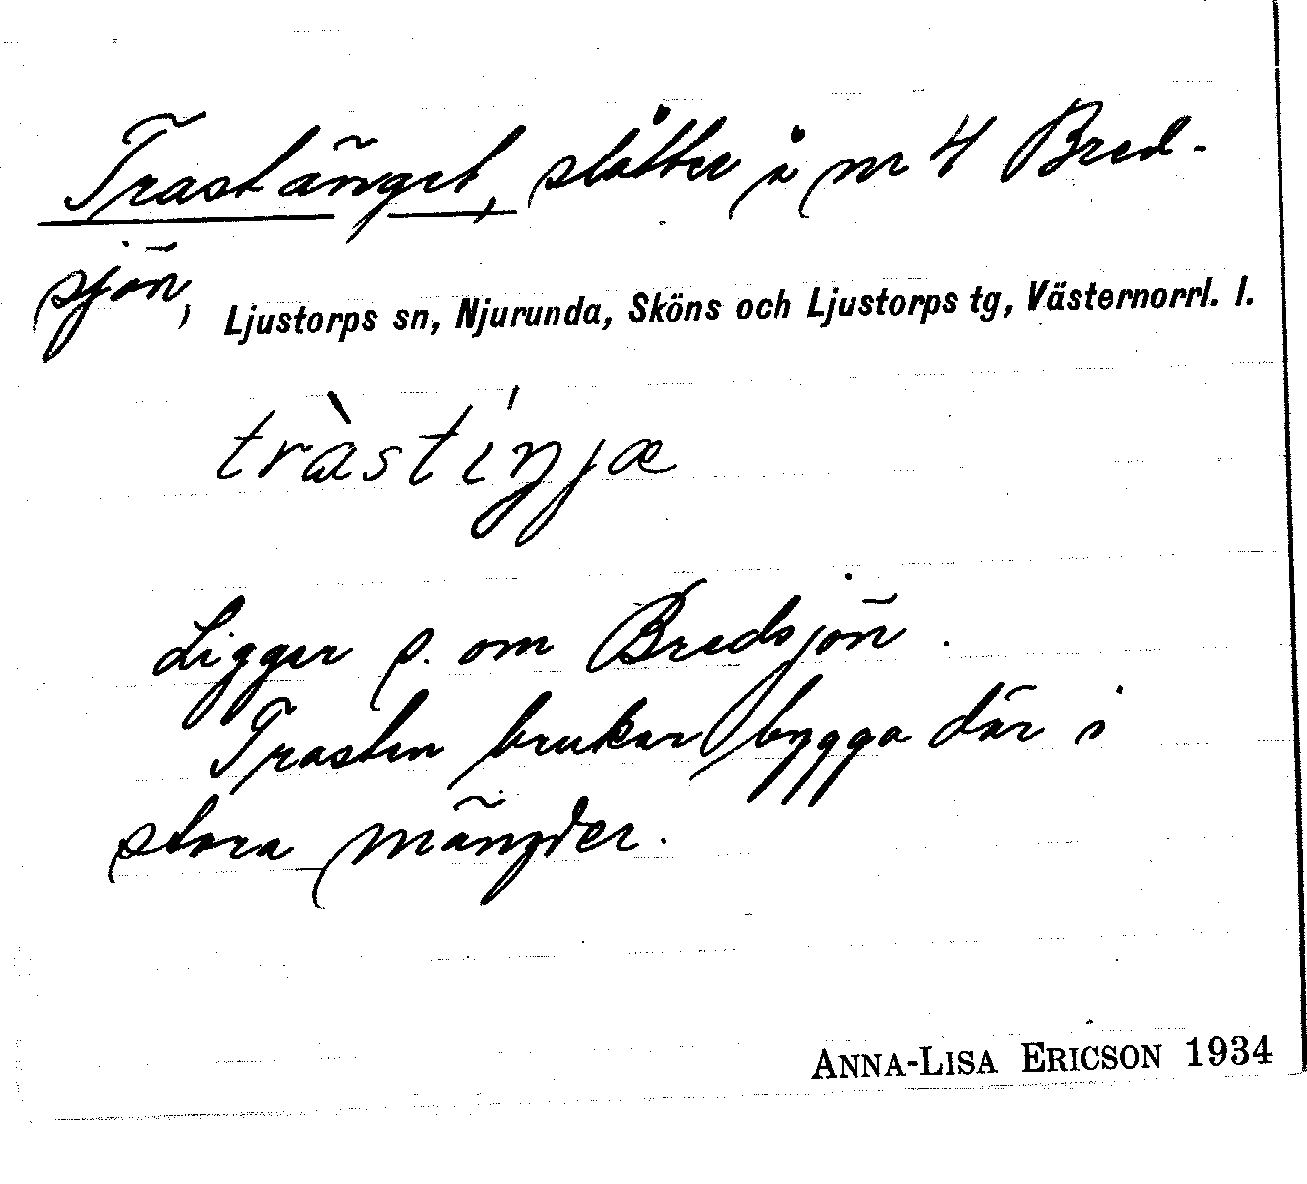 Trastänget, slåtter å nr 4 Bred-
sjön, Ljustorps sn, Njurunda, Sköns och Ljustorps tg, Västernorrl. l.
tràstíŋjæ
Ligger s. om Bredsjön.
Trasten brukar bygga där i
stora mängder.
ANNA-LISA ERICSON 1934